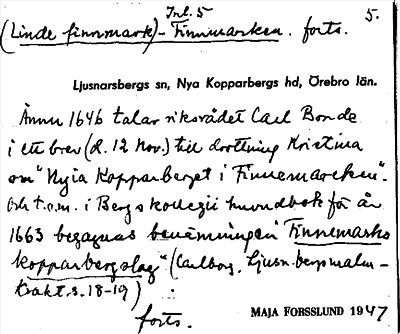 Inl. 5
5.
(Linde finnmark) - Finnmarken. forts.
Ljusnarsbergs sn, Nya Kopparbergs hd, Örebro län.
Ännu 1646 talar riksrådet Carl Bonde
i ett brev (d. 12 Nov.) till drottning Kristina
om "Nyia Kopparberget i Finnemarcken".
Och t.o.m. i Bergskollegii huvudbok för år
1663 begagnas benämningen "Finnemarks
kopparbergslag" (Carlborg, Ljusn. bergsmalm-
trakt. s. 18-19)
forts.
MAJA FORSSLUND 1947